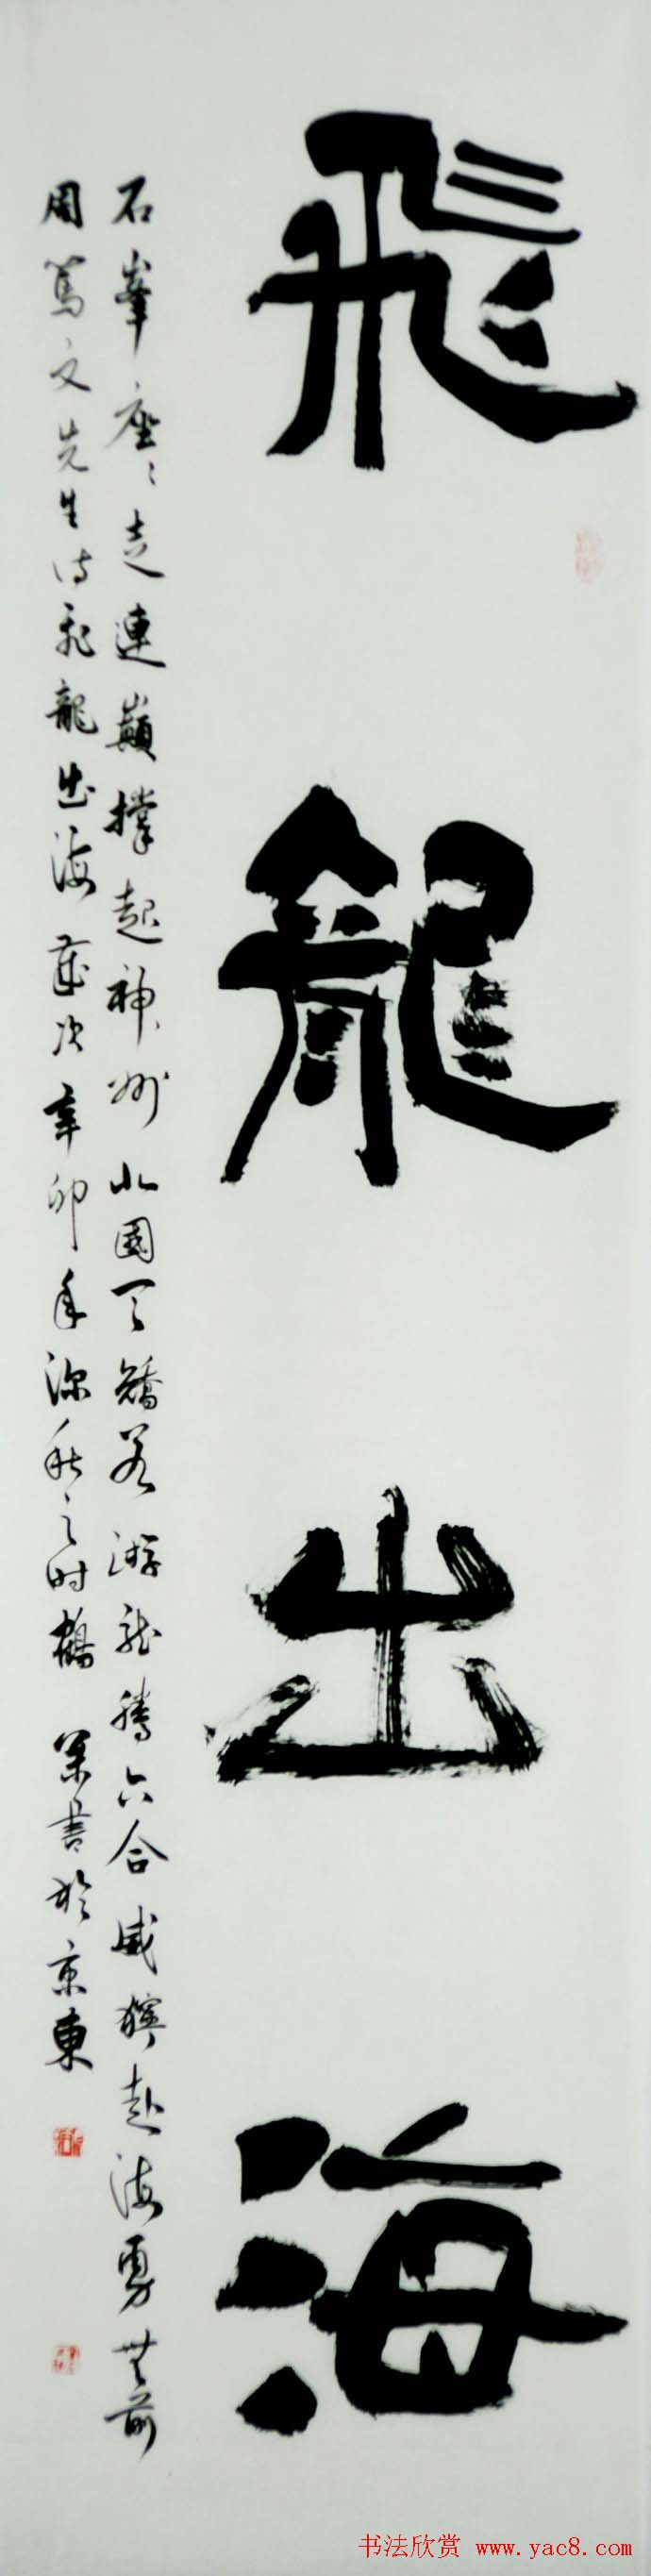 飛龍出海
石峯座座走連巔撑起神州北國天矯若游龍騰六合威獰赴海勇無前
周篤文先生詩飛龍出海歲次辛卯年深秋之时鶴 书於京東
书法欣赏 www.yac8.com